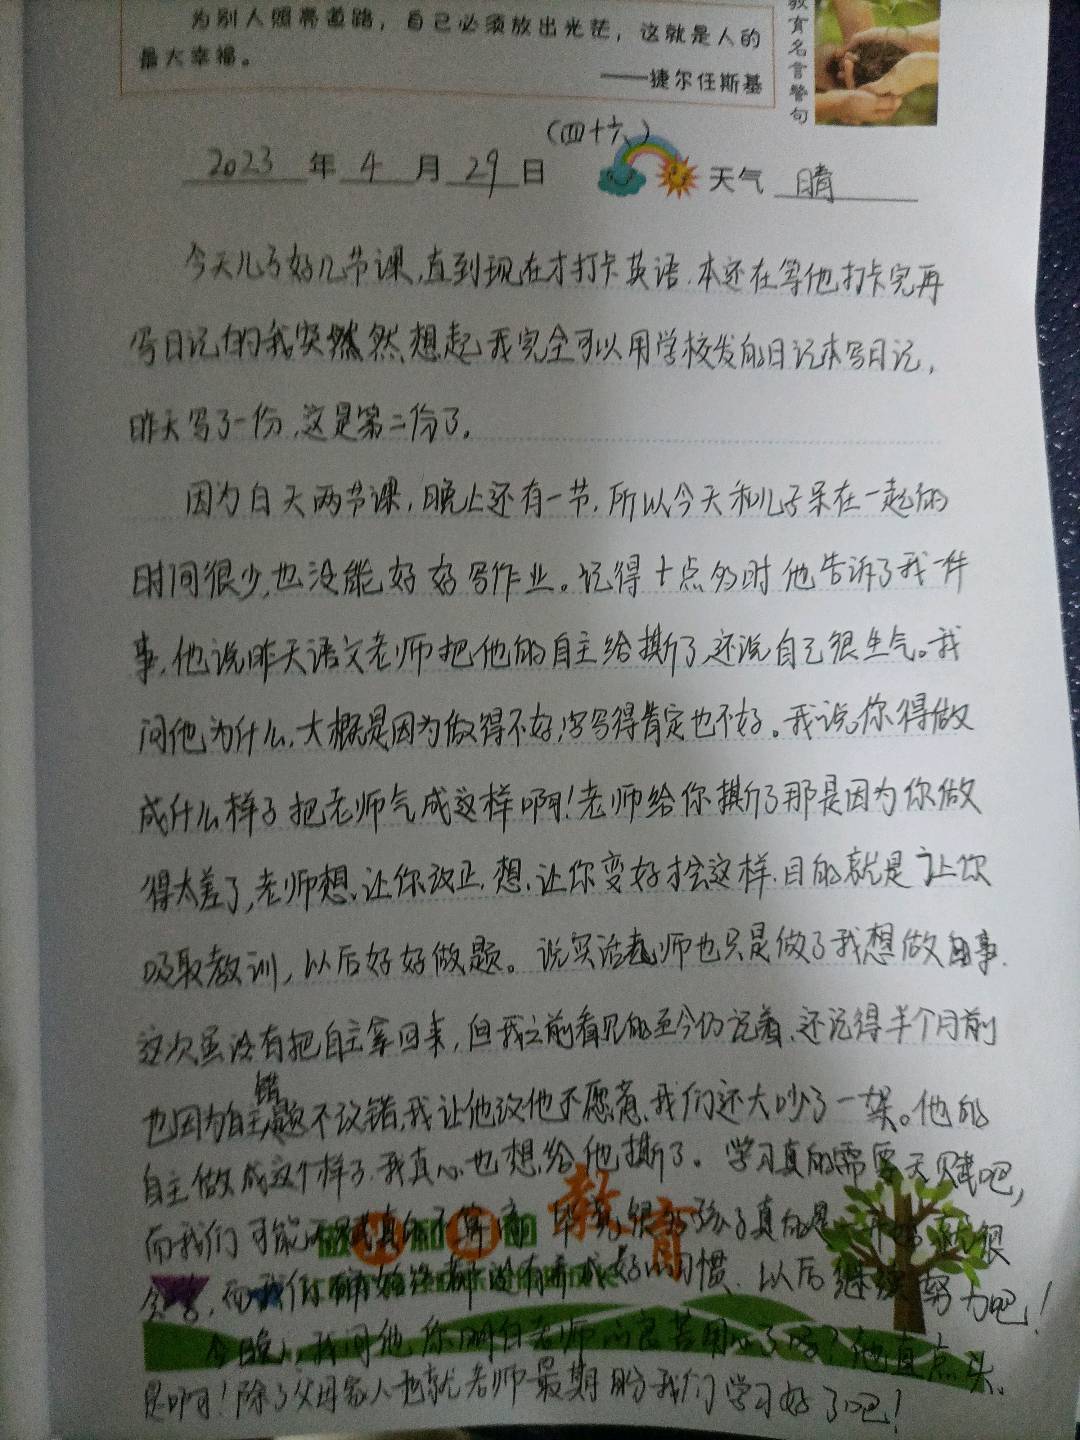 为别人照亮道路，自己必须放出光芒，这就是人的
最大幸福。
——捷尔任斯基
教育名言警句
（四十六）
2023年4月29日 天气 晴
今天儿子好几节课,直到现在才打卡英语.本还在等他打卡完再
写日记的我突然然想起,我完全可以用学校发的日记本写日记,
昨天写了一份,这是第二份了.
因为白天两节课,晚上还有一节.所以今天和儿子呆在一起的
时间很少,也没能好好写作业。记得十点多时他告诉了我一件
事,他说昨天语文老师把他的自主给撕了,还说自己很生气。我
问他为什么,大概是因为做得不好,字写得肯定也不好。我说你得做
成什么样子把老师气成这样啊!老师给你撕了那是因为你做
得太差了,老师想让你改正,想让你变好才会这样.目的就是让你
吸取教训,以后好好做题。说实话老师也只是做了我想做的事.
这次虽没有把自主拿回来,但我之前看见的至今仍记着,还记得半个月前
也因为自主错题不改错,我让他改他不愿意,我们还大吵了一架。他的
自主做成这个样子.我真心也想给他撕了。学习真的需要天赋吧,
而我们可能天赋真的不算高,毕竟很多孩子真的是一
教育
而我们 始终都没有养成好的习惯、以后继续努力吧!
今晚,我问他你明白老师的良苦用心了吗?他直点头.
是啊!除了父母家人也就老师最期盼我们学习好了吧!